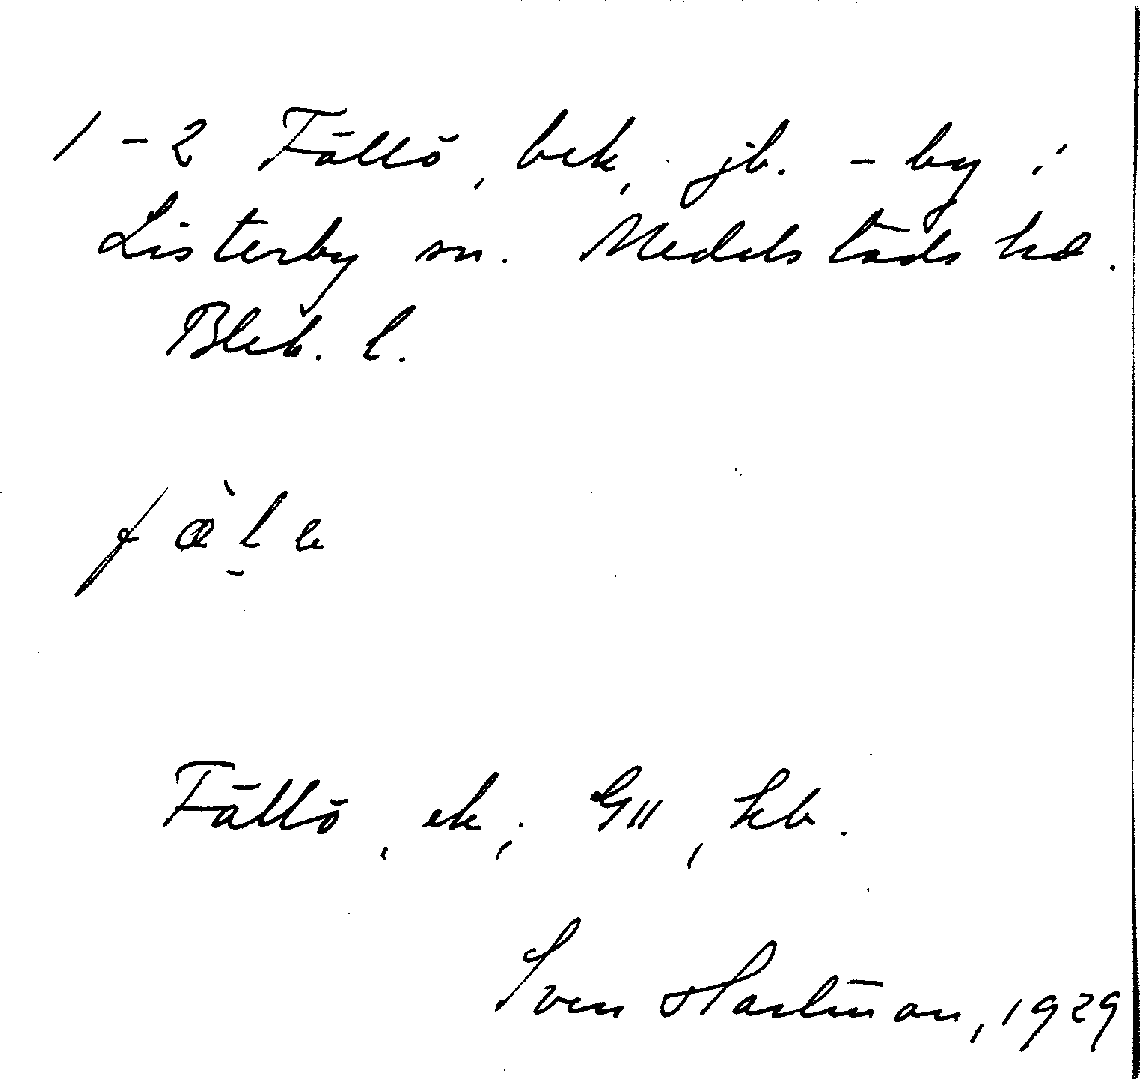 1-2 Fällö, bek, jb. - by i
Listerby sn. Medelstads hd.
Blek. l.
fæ̀l̠e
Fällö, ek; GII, kb.
Sven Hartman, 1929